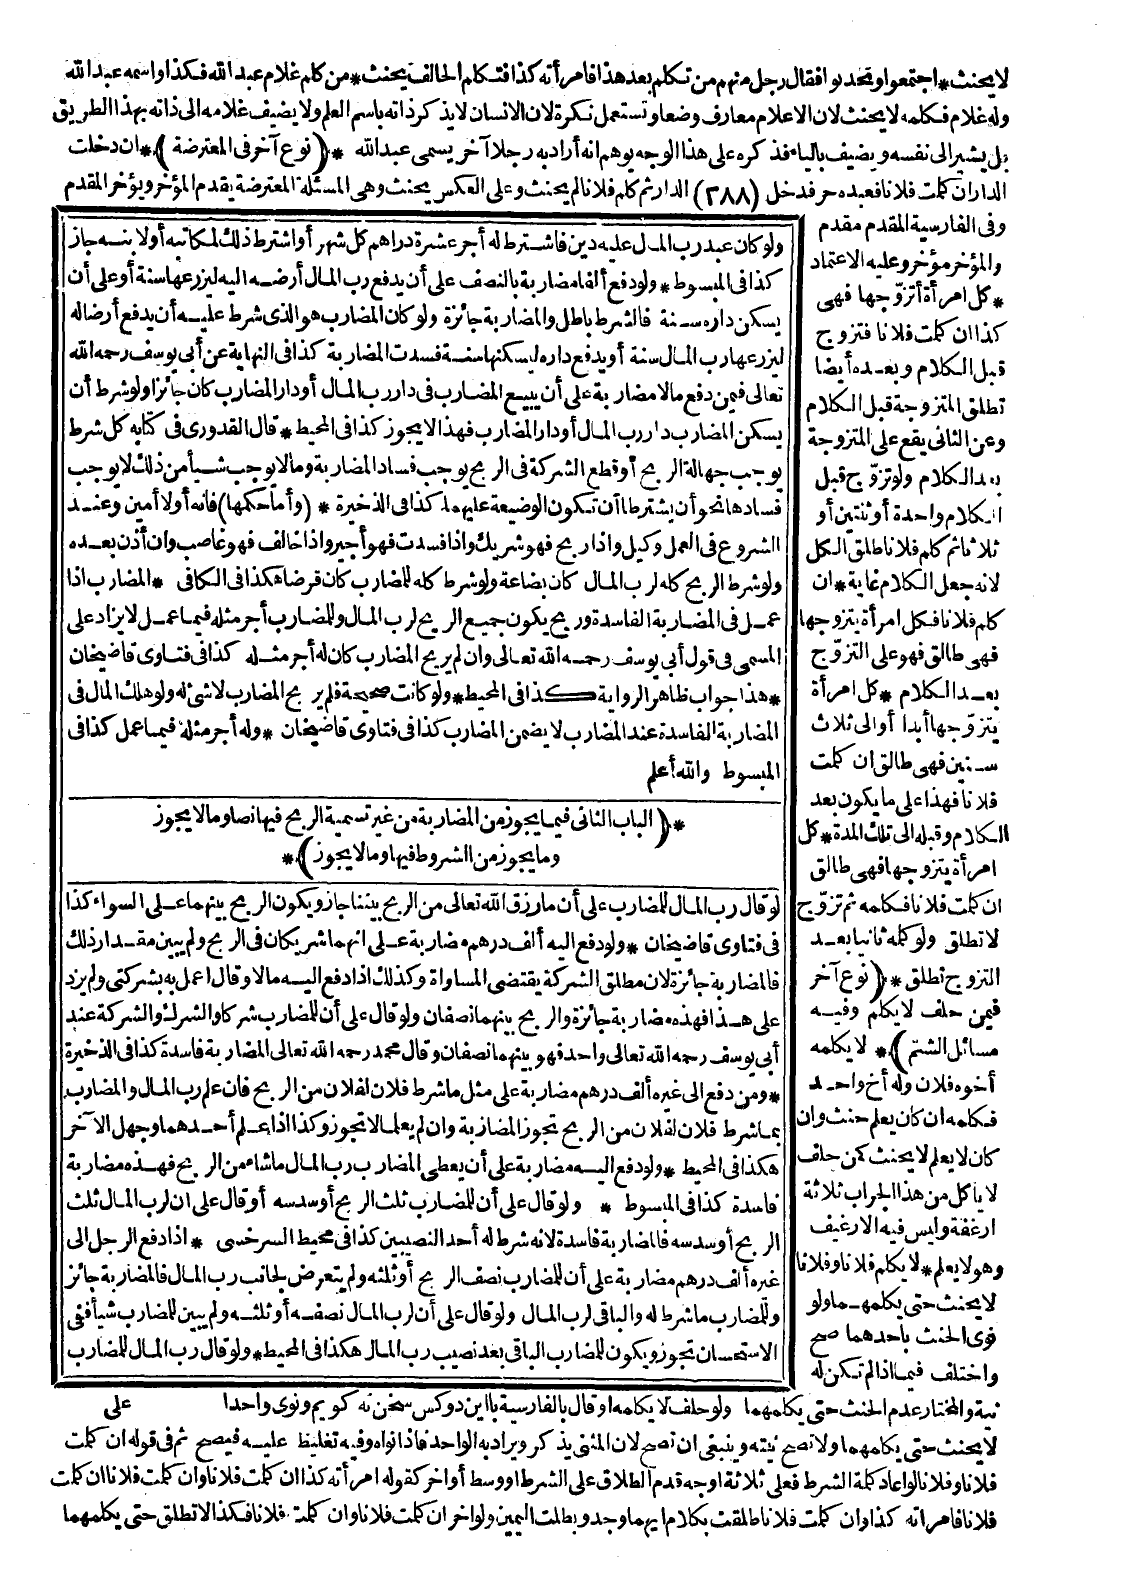 لا يحنث * اجتمعوا وتحدثوا فقال رجل منهم من تكلم بعد هذا فامرأته كذا فتكلم الحالف يحنث * من كلم غلام عبد الله فكذا واسمه عبد الله
وله غلام فكلمه لا يحنث لان الاعلام معارف وضعا وتستعمل نكرة لان الانسان لا يذكر ذاته باسم العلم ولا يضيف غلامه الى ذاته بهذا الطريق
بل يشير الى نفسه ويضيف بالياء فذكره على هذا الوجه يوهم انه أراد به رجلا آخر يسمى عبد الله * (نوع آخر فى المعترضة) * ان دخلت
الدار ان كلمت فلانا فعبده حر فدخل (٣٨٨) الدار ثم كلم فلانا لم يحنث وعلى العكس يحنث وهى المسئلة المعترضة يقدم المؤخر ويؤخر المقدم
وفى الفارسية المقدم مقدم
والمؤخر مؤخر وعليه الاعتماد
* كل امرأة أتزوّجها فهى
كذا ان كلمت فلانا فتزوج
قبل الكلام وبعده أيضا
تطلق المتزوجة قبل الكلام
وعن الثانى يقع على المتزوجة
بعد الكلام ولو تزوّج قبل
الكلام واحدة أو ثنتين أو
ثلاثا ثم كلم فلانا طلق الكل
لانه جعل الكلام غاية * ان
كلم فلانا فكل امرأة يتزوجها
فهى طالق فهو على التزوّج
بعد الكلام * كل امرأة
يتزوّجها أبدا أو الى ثلاث
سنين فهى طالق ان كلمت
فلانا فهذا على ما يكون بعد
الكلام وقبله الى تلك المدة * كل
امرأة يتزوجها فهى طالق
ان كلمت فلانا فكلمه ثم تزوّج
لا تطلق ولو كلمه ثانيا بعد
التزوج تطلق * (نوع آخر
فيمن حلف لا يكلم وفيه
مسائل الشتم) * لا يكلمه
أخوه فلان وله أخ واحد
فكلمه ان كان يعلم حنث وان
كان لا يعلم لا يحنث كمن حلف
لا يأكل من هذا الجراب ثلاثة
ارغفة وليس فيه الا رغيف
وهو لا يعلم * لا يكلم فلانا وفلانا
لا يحنث حتى يكلمهما ولو
نوى الحنث بأحدهما صح
واختلف فيما اذا لم تكن له
ولو كان عبد رب المال عليه دين فاشترط له أجر عشرة دراهم كل شهر أو اشترط ذلك لمكاتبه أو لابنه جاز
كذا فى المبسوط * ولو دفع ألفا مضاربة بالنصف على أن يدفع رب المال أرضه اليه ليزرعها سنة أو على أن
يسكن داره سنة فالشرط باطل والمضاربة جائزة ولو كان المضارب هو الذى شرط عليه أن يدفع أرضا له
ليزرعها رب المال سنة أو يدفع داره ليسكنها سنة فسدت المضاربة كذا فى النهاية عن أبى يوسف رحمه الله
تعالى فيمن دفع مالا مضاربة على أن يبيع المضارب فى دار رب المال أو دار المضارب كان جائزا ولو شرط أن
يسكن المضارب دار رب المال أو دار المضارب فهذا لا يجوز كذا فى المحيط * قال القدورى فى كتابه كل شرط
يوجب جهالة الربح أو قطع الشركة فى الربح يوجب فساد المضاربة وما لا يوجب شيأ من ذلك لا يوجب
فسادها نحو أن يشترطا أن تكون الوضيعة عليهما كذا فى الذخيرة * (وأما حكمها) فانه أولا أمين وعند
الشروع فى العمل وكيل واذا ربح فهو شريك واذا فسدت فهو أجير واذا خالف فهو غاصب وان أذن بعده
ولو شرط الربح كله لرب المال كان بضاعة ولو شرط كله للمضارب كان قرضا هكذا فى الكافى * المضارب اذا
عمل فى المضاربة الفاسدة وربح يكون جميع الربح لرب المال وللمضارب أجر مثله فيما عمل لا يزاد على
المسمى فى قول أبى يوسف رحمه الله تعالى وان لم يربح المضارب كان له أجر مثله كذا فى فتاوى قاضيخان
* هذا جواب ظاهر الرواية كذا فى المحيط * ولو كانت صحيحة فلم يربح المضارب لا شئ له ولو هلك المال فى
المضاربة الفاسدة عند المضارب لا يضمن المضارب كذا فى فتاوى قاضيخان * وله أجر مثله فيما عمل كذا فى
المبسوط والله أعلم
* (الباب الثانى فيما يجوز من المضاربة من غير تسمية الربح فيها نصا وما لا يجوز
وما يجوز من الشروط فيها وما لا يجوز) *
لو قال رب المال للمضارب على أن ما رزق الله تعالى من الربح بيننا جاز ويكون الربح بينهما على السواء كذا
فى فتاوى قاضيخان * ولو دفع اليه ألف درهم مضاربة على انهما شريكان فى الربح ولم يبين مقدار ذلك
فالمضاربة جائزة لان مطلق الشركة يقتضى المساواة وكذلك اذا دفع اليه مالا وقال اعمل به بشركتى ولم يزد
على هذا فهذه مضاربة جائزة والربح بينهما نصفان ولو قال على أن للمضارب شركا والشرك والشركة عند
أبى يوسف رحمه الله تعالى واحد فهو بينهما نصفان وقال محمد رحمه الله تعالى المضاربة فاسدة كذا فى الذخيرة
* ومن دفع الى غيره ألف درهم مضاربة على مثل ما شرط فلان لفلان من الربح فان علم رب المال والمضارب
بما شرط فلان لفلان من الربح تجوز المضاربة وان لم يعلما لا تجوز وكذا اذا علم أحدهما وجهل الآخر
هكذا فى المحيط * ولو دفع اليه مضاربة على أن يعطى المضارب رب المال ما شاء من الربح فهذه مضاربة
فاسدة كذا فى المبسوط * ولو قال على أن للمضارب ثلث الربح أو سدسه أو قال على ان لرب المال ثلث
الربح أو سدسه فالمضاربة فاسدة لانه شرط له أحد النصيبين كذا فى محيط السرخسى * اذا دفع الرجل الى
غيره ألف درهم مضاربة على أن للمضارب نصف الربح أو ثلثه ولم يتعرض لجانب رب المال فالمضاربة جائز
وللمضارب ما شرط له والباقى لرب المال ولو قال على أن لرب المال نصفه أو ثلثه ولم يبين للمضارب شيأ ففى
الاستحسان تجوز ويكون للمضارب الباقى بعد نصيب رب المال هكذا فى المحيط * ولو قال رب المال للمضارب
على
نية والمختار عدم الحنث حتى يكلمهما ولو حلف لا يكلمه او قال بالفارسية بااين دو كس سخن نه كويم ونوى واحدا
لا يحنث حتى يكلمهما ولا تصح نيته وينبغى ان تصح لان المثنى يذكر ويراد به الواحد فاذا نواه وفيه تغليظ عليه فيصح ثم فى قوله ان كلمت
فلانا وفلانا لو اعاد كلمة الشرط فعلى ثلاثة اوجه قدم الطلاق على الشرط او وسط أو اخر كقوله امرأته كذا ان كلمت فلانا وان كلمت فلانا ان كلمت
فلانا فامراته كذا وان كلمت فلانا طلقت بكلام ايهما وجد وبطلت اليمين ولو اخر ان كلمت فلانا وان كلمت فلانا فكذا لا تطلق حتى يكلمهما